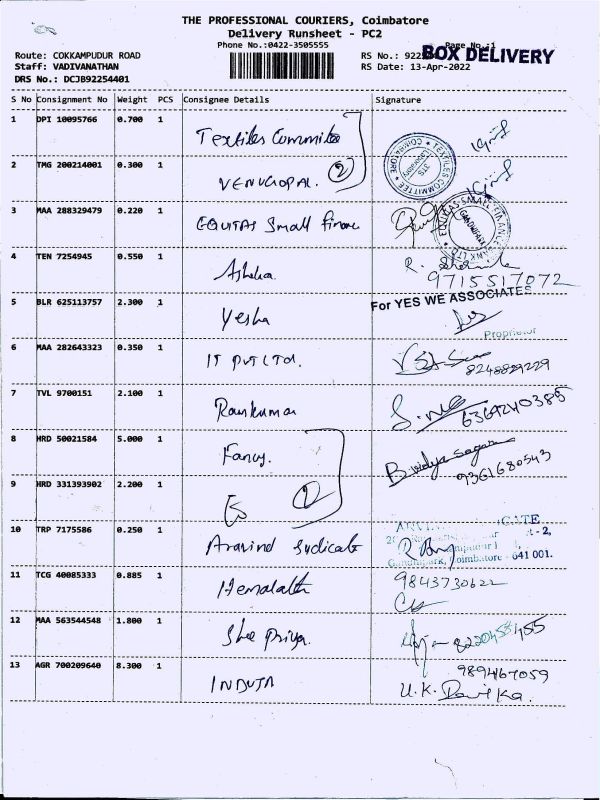 THE PROFESSIONAL COURIERS, Coimbatore
Delivery Runsheet - PC2
Phone No.:0422-3505555
Page No.:1
Route: COKKAMPUDUR ROAD
RS No.: 922
BOX DELIVERY
Staff: VADIVANATHAN
RS Date: 13-Apr-2022
DRS No.: DCJB92254401
S No Consignment No Weight PCS Consignee Details Signature
1 DPI 10095766 0.700 1 Textiles Committee
TEXTILES COMMITTEE COIMBATORE
2 TMG 200214001 0.300 1 VENUGOPAL. 2
3 MAA 288329479 0.220 1 EQUITAS Small Finance
EQUITAS SMALL FINANCE BANK LTD
4 TEN 7254945 0.550 1 Ashika
9715517072
5 BLR 625113757 2.300 1 Yesha
For YES WE ASSOCIATES
Proprietor
6 MAA 282643323 0.350 1 IT PVT LTD.
8248829229
7 TVL 9700151 2.100 1 Ramkumar
6369240385
8 HRD 50021584 5.000 1 Fancy.
B. vidya sagar
9361680543
9 HRD 331393902 2.200 1
10 TRP 7175586 0.250 1 Aravind Syndicate
Coimbatore - 641 001.
11 TCG 40085333 0.885 1 Hemalatha
9843730622
12 MAA 563544548 1.800 1 Shee Priya.
8220455455
13 AGR 700209640 8.300 1 INDUJA
9894167059
U.K.